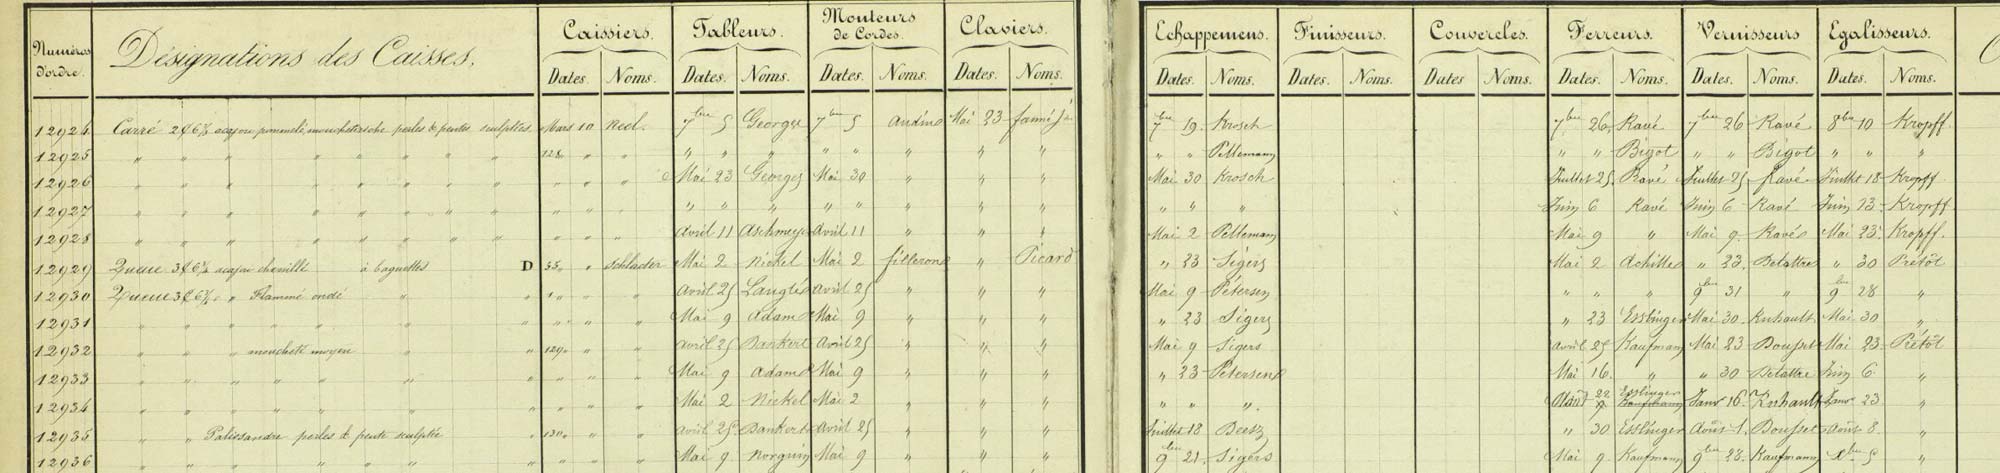 Numéros d'ordre. Désignations des Caisses. Caissiers. Tableurs. Monteurs de Cordes. Claviers. Echappemens. Finisseurs. Couvercles. Ferreurs. Vernisseurs Egalisseurs.
Dates. Noms. Dates. Noms. Dates. Noms. Dates. Noms. Dates. Noms. Dates. Noms. Dates. Noms. Dates. Noms. Dates. Noms. Dates. Noms.
12924 Carré 2 C 6 1/2 acajou pommelé perles & pentes sculptées Mars 10 Neel. 7bre 5 George 7bre 5 Mai 23 7bre 19. Krosch 7bre 26. Ravé 7bre 26 Ravé 8bre 10 Kropff
12925 " " " " " " " " " 128 " " " " " " " " " " " Pellemann " " Bigot " " Bigot " " "
12926 " " " " " " " " " " " " Mai 23 Georges Mai 30 " " " Mai 30 Krosch Juillet 25. Ravé Juillet 25 Ravé Juillet 18 Kropff
12927 " " " " " " " " " " " " " " " " " " " " " " " Juin 6 Ravé Juin 6 Ravé Juin 13. Kropff
12928 " " " " " " " " " " " " Avril 11 Aschmeyer Avril 11 " " " Mai 2 Pellemann Mai 9 " Mai 9. Ravé Mai 23. Kropff.
12929 Queue 3 C 6 1/2 acajou chenillé à baguettes D 35 " Schluder Mai 2 Nickel Mai 2 " Picard " 23 Sigers Mai 2 Achille " 23. Delattre " 30 Prétôt
12930 Queue 3 C 6 1/2 " Flammé ondé " " " " " Avril 25 Langlés Avril 25 " " " Mai 9 Petersen " " " 9bre 31 " 9bre 28 "
12931 " " " " " " " " " " " Mai 9 Adam Mai 9 " " " " 23 Sigers " 23 Esslinger Mai 30. Kuhault Mai 30 "
12932 " " " moucheté moyen " " 129 " " Avril 25 Dankert Avril 25 " " " Mai 9 Sigers Avril 25 Kaufmann Mai 23 Bousset Mai 23. Prétôt
12933 " " " " " " " " " " " Mai 9 Adam Mai 9 " " " " 23 Petersen Mai 16. " " 30 Delattre Juin 6. "
12934 " " " " " " " " " " " Mai 2 Nickel Mai 2 " " " " " " 22 Esslinger Janv 16. Kuhault Janv 23 "
12935 " " Palissandre perles & pente sculptée " 130 " " Avril 25 Dankert Avril 25 " " " Juillet 18 Beetz " 30 Esslinger Août 1. Bousset Août 8. "
12936 " " " " " " " " " " Mai 9 Norguin Mai 9 " " " 9bre 21. Sigers Mai 9 Kaufmann 9bre 28. Kaufmann Xbre 5 "